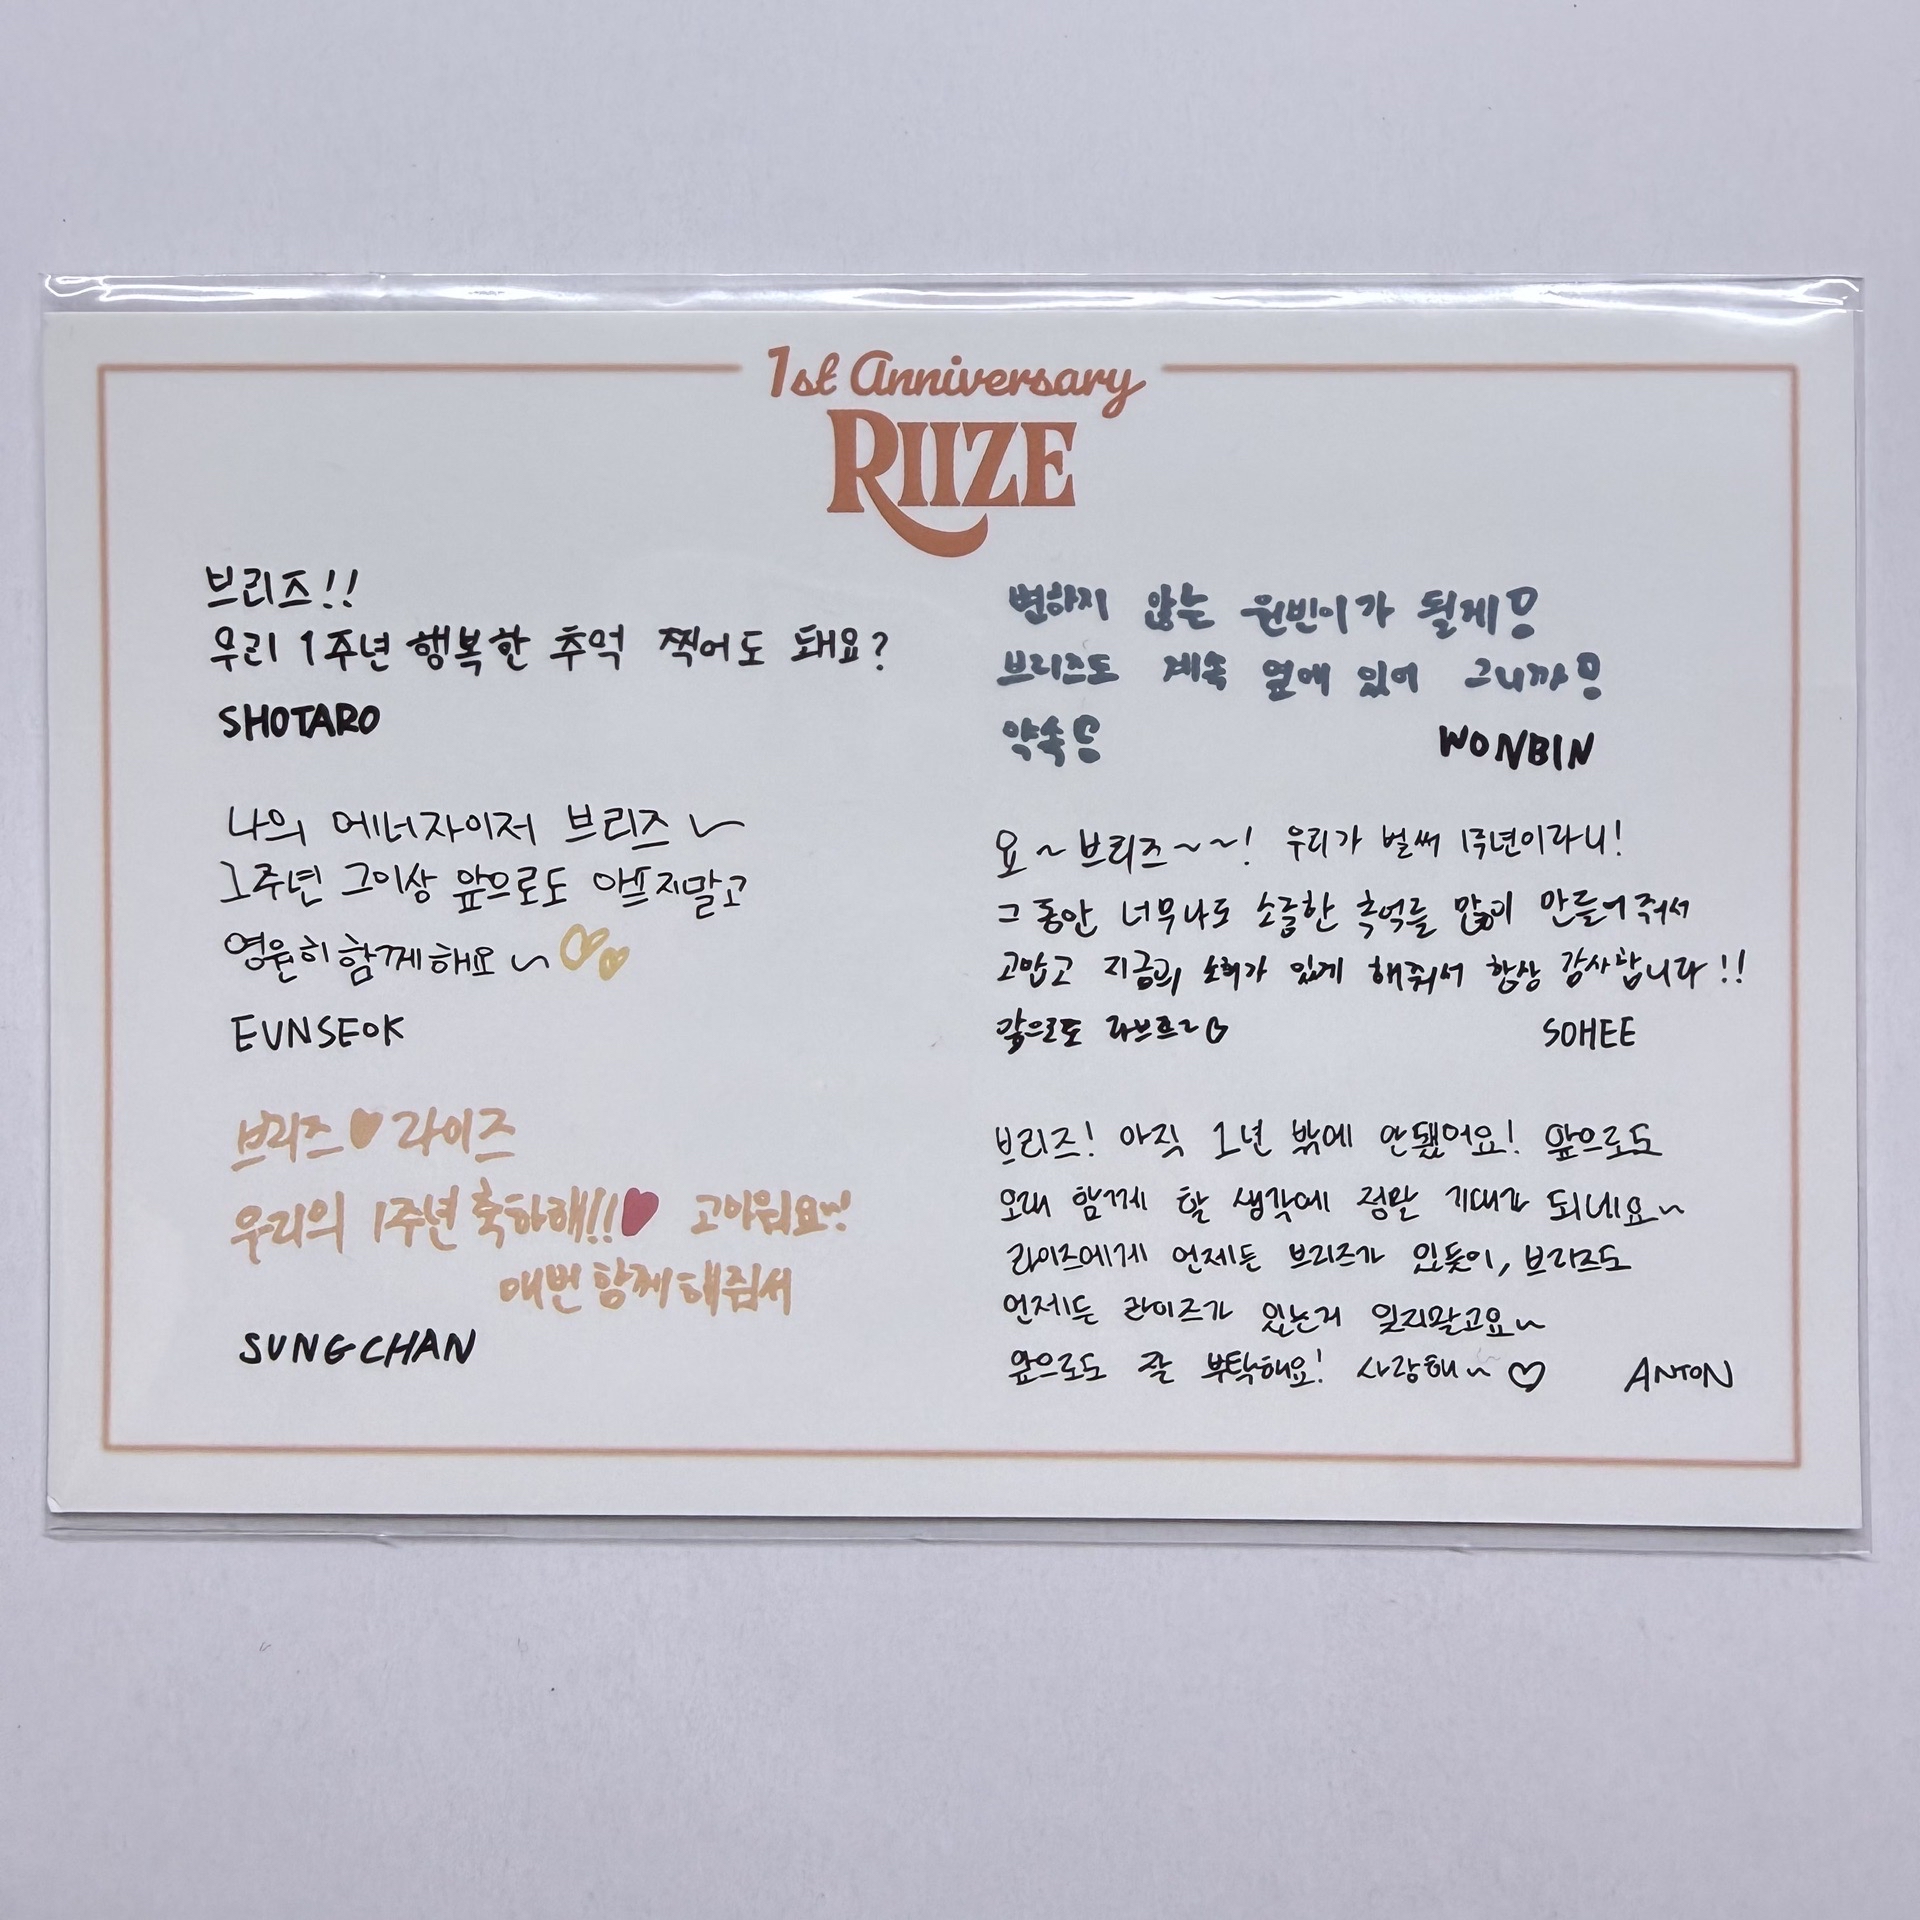 1st Anniversary
RIIZE
브리즈!!
우리 1주년 행복한 추억 찍어도 돼요?
SHOTARO
나의 에너자이저 브리즈~
1주년 그이상 앞으로도 아프지말고
영원히 함께해요~♡♡
EUNSEOK
브리즈♥라이즈
우리의 1주년 축하해!!♥ 고마워요~!
매번 함께해줘서
SUNGCHAN
변하지 않는 원빈이가 될게!
브리즈도 계속 옆에 있어 그니까!
약속!
WONBIN
요~브리즈~~! 우리가 벌써 1주년이라니!
그동안 너무나도 소중한 추억을 많이 만들어줘서
고맙고 지금의 소희가 있게 해줘서 항상 감사합니다!!
앞으로도 라브흐~♡
SOHEE
브리즈! 아직 1년 밖에 안됐어요! 앞으로도
오래 함께 할 생각에 정말 기대가 되네요~
라이즈에게 언제든 브리즈가 있듯이, 브리즈도
언제든 라이즈가 있는거 잊지말고요~
앞으로도 잘 부탁해요! 사랑해~♡
ANTON